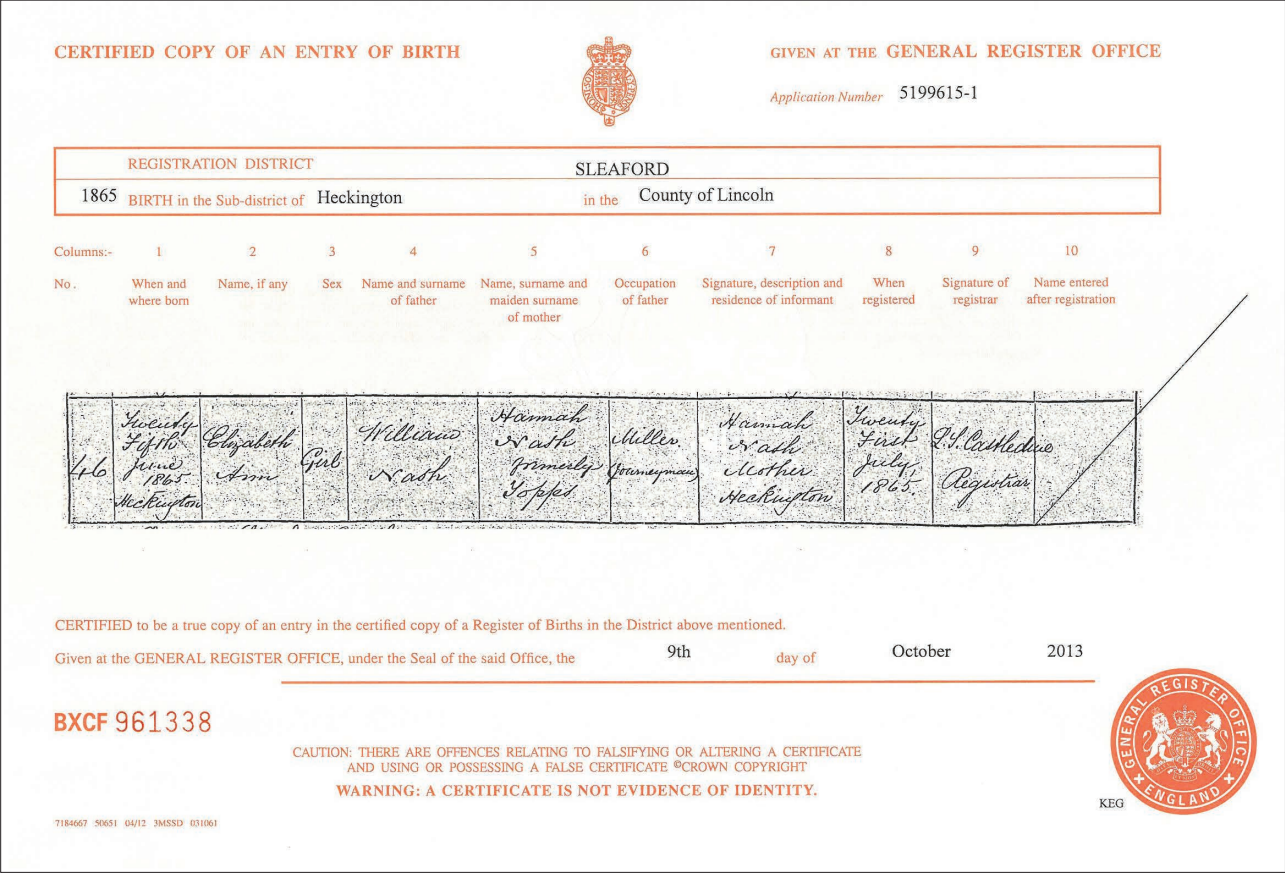 CERTIFIED COPY OF AN ENTRY OF BIRTH
GIVEN AT THE GENERAL REGISTER OFFICE
Application Number 5199615-1
REGISTRATION DISTRICT SLEAFORD
1865 BIRTH in the Sub-district of Heckington in the County of Lincoln
Columns:- 1 2 3 4 5 6 7 8 9 10
No. When and where born Name, if any Sex Name and surname of father Name, surname and maiden surname of mother Occupation of father Signature, description and residence of informant When registered Signature of registrar Name entered after registration
46
Twenty
Fifth
June
1865
Heckington
Elizabeth
Ann
Girl
William
Nash
Hannah
Nash
formerly
Topps
Miller
(Journeyman)
Hannah
Nash
Mother
Heckington
Twenty
First
July,
1865.
Registrar
CERTIFIED to be a true copy of an entry in the certified copy of a Register of Births in the District above mentioned.
Given at the GENERAL REGISTER OFFICE, under the Seal of the said Office, the 9th day of October 2013
BXCF 961338
CAUTION: THERE ARE OFFENCES RELATING TO FALSIFYING OR ALTERING A CERTIFICATE
AND USING OR POSSESSING A FALSE CERTIFICATE ©CROWN COPYRIGHT
WARNING: A CERTIFICATE IS NOT EVIDENCE OF IDENTITY.
GENERAL REGISTER OFFICE
ENGLAND
KEG
7184667 50651 04/12 3MSSD 031061